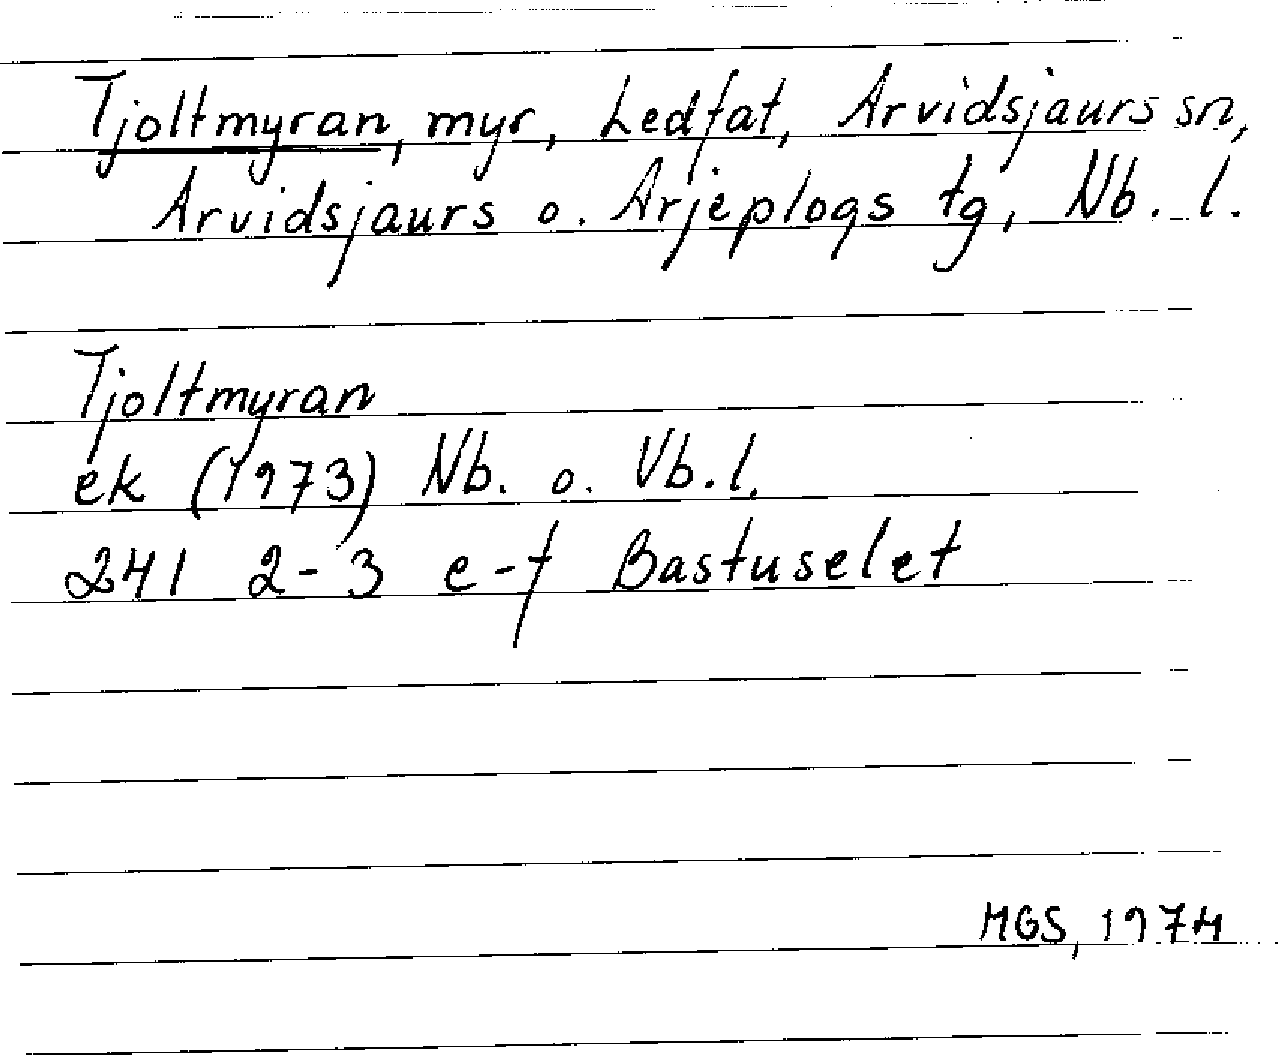 Tjoltmyran, myr, Ledfat, Arvidsjaurs sn,
Arvidsjaurs o. Arjeplogs tg, Nb. l.
Tjoltmyran
ek (1973) Nb. o. Vb. l.
241 2-3 e-f Bastuselet
MGS, 1974